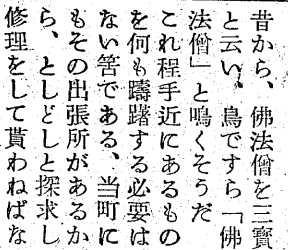 昔から、佛法僧を三寳
と云い、鳥ですら「佛
法僧」と鳴くそうだ
これ程手近にあるもの
を何も躊躇する必要は
ない筈である、当町に
もその出張所があるか
ら、としどしと探求し
修理をして貰わねばな